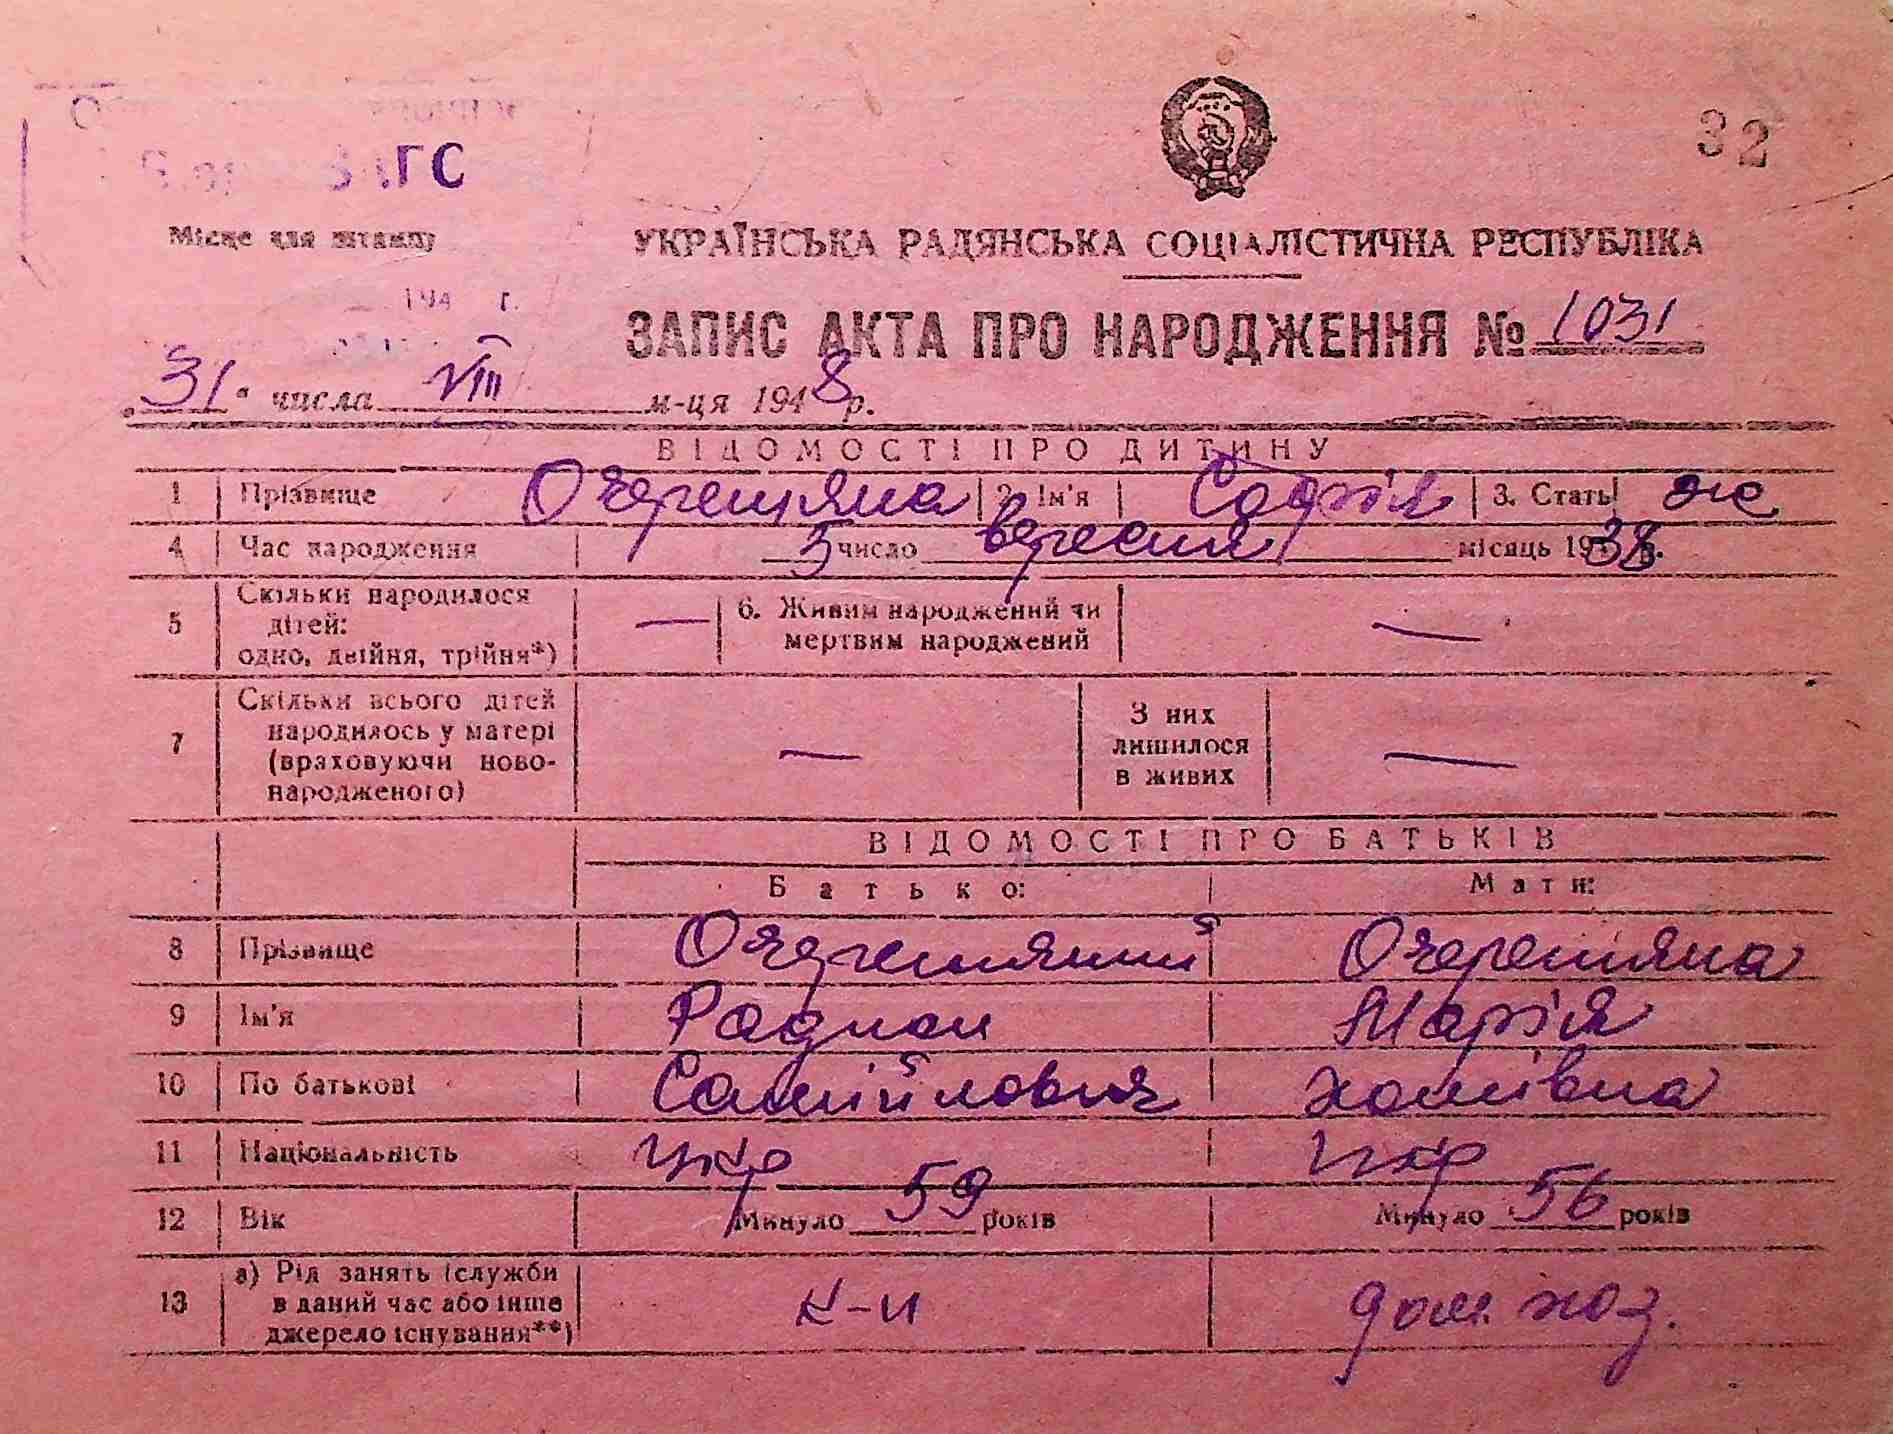 ЗАГС
32
Місце для штампу
УКРАЇНСЬКА РАДЯНСЬКА СОЦІАЛІСТИЧНА РЕСПУБЛІКА
194 г.
ЗАПИС АКТА ПРО НАРОДЖЕННЯ № 1031
„31“ числа VIII м-ця 1948 р.
ВІДОМОСТІ ПРО ДИТИНУ
1 Прізвище Очеретяна 2. Ім'я Софія 3. Стать ж
4 Час народження 5 число вересня місяць 1938 р.
5 Скільки народилося дітей: одно, двійня, трійня*) — 6. Живим народжений чи мертвим народжений —
7 Скільки всього дітей народилось у матері (враховуючи новонародженого) — З них лишилося в живих —
ВІДОМОСТІ ПРО БАТЬКІВ
Батько: Мати:
8 Прізвище Очеретяний Очеретяна
9 Ім'я Радион Марія
10 По батькові Самійлович Хомівна
11 Національність Укр Укр
12 Вік Минуло 59 років Минуло 56 років
13 а) Рід занять (служби в даний час або інше джерело існування**) к-к дом. хоз.